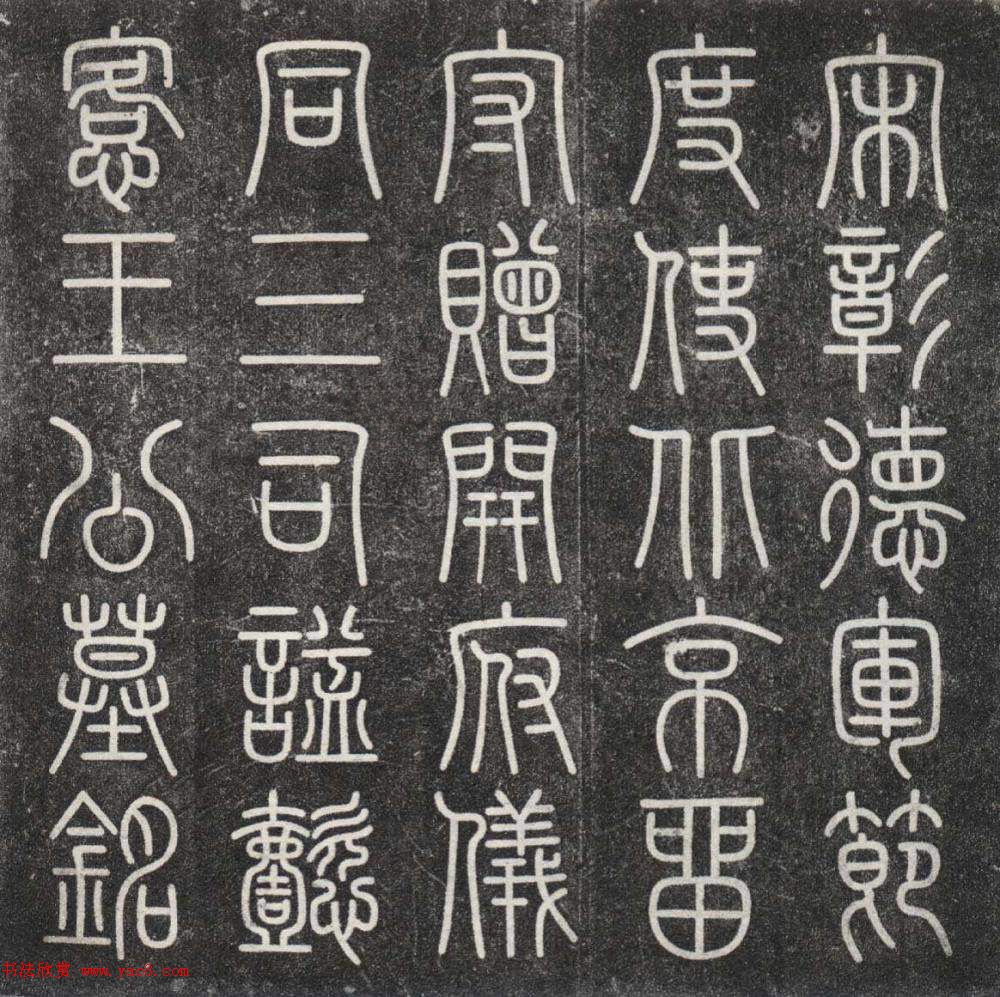 宋彰德軍節
度使北京留
守贈開府儀
同三司謚懿
愙王公墓銘
书法欣赏 www.yac8.com